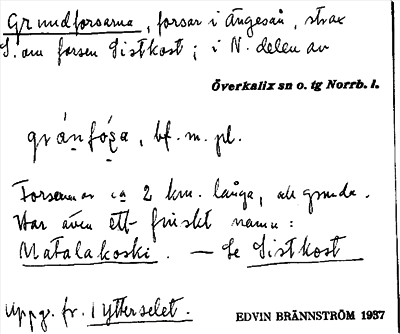 Grundforsarna, forsar i Ängesån, strax
S. om forsen Sistkost; i N. delen av
Överkalix sn o. tg Norrb. l.
gránfó̱sa, bf. m. pl.
Forsarna är ca 2 km. långa, äro grunda.
Har även ett finskt namn:
Matalakoski. — Se Sistkost
Uppg. fr. Ytterselet.
EDVIN BRÄNNSTRÖM 1937